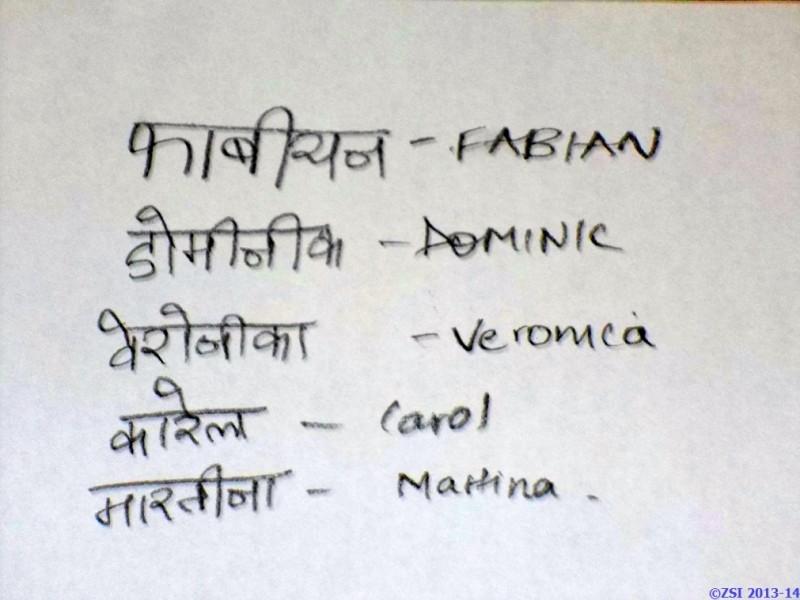 फाबीयन - FABIAN
डोमीनीक - DOMINIC
वेरोनीका - Veronica
कारेल - Carol
मारतीना - Martina.
©ZSI 2013-14